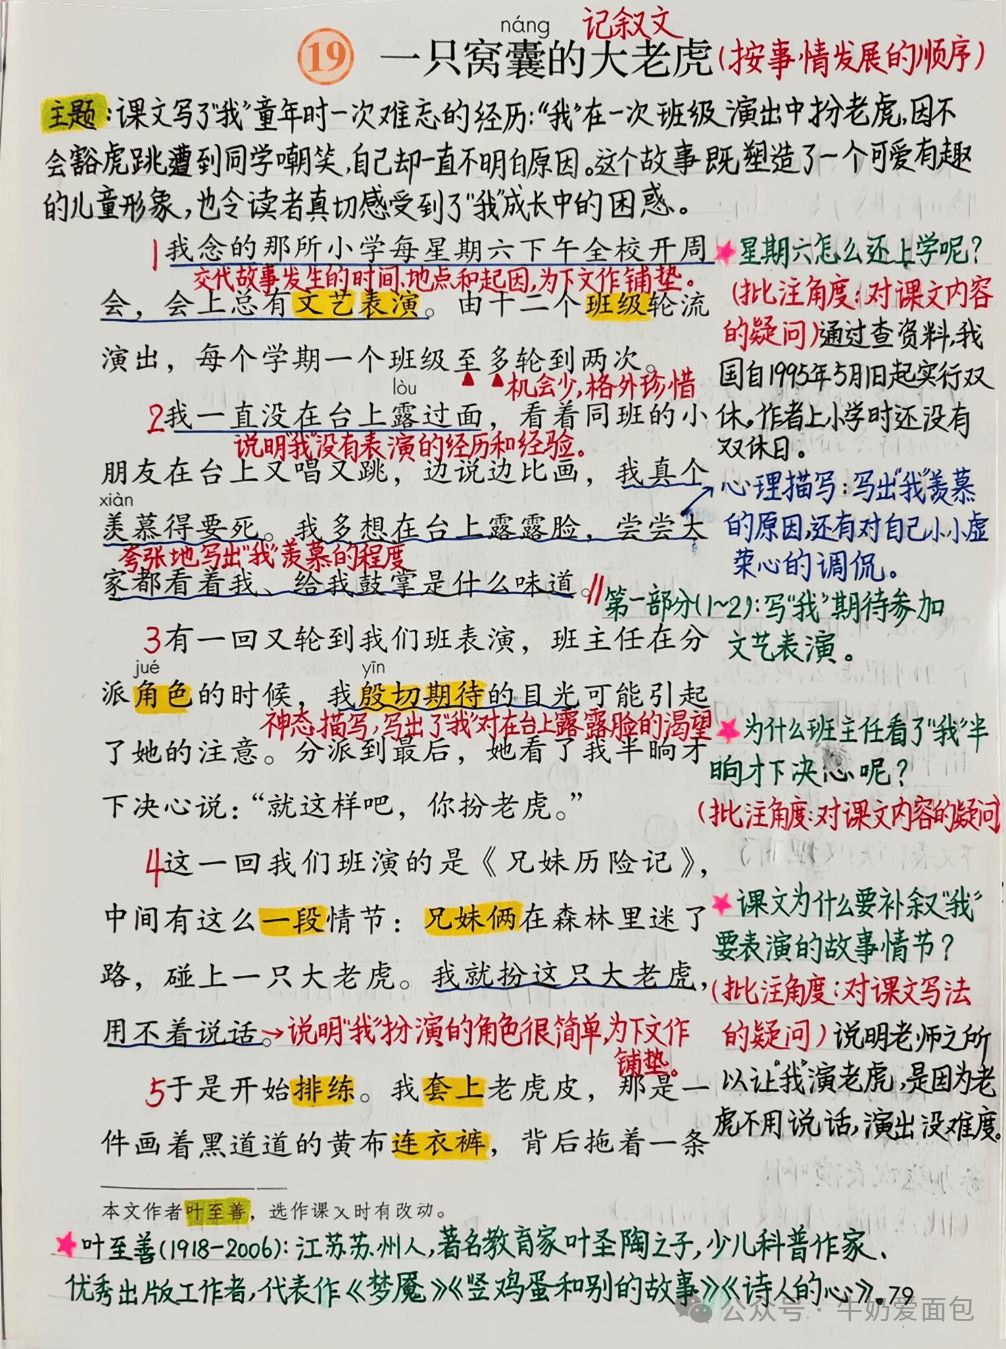 náng
记叙文
19 一只窝囊的大老虎(按事情发展的顺序)
主题:课文写了“我”童年时一次难忘的经历:“我”在一次班级演出中扮老虎,因不
会豁虎跳遭到同学嘲笑,自己却一直不明白原因。这个故事既塑造了一个可爱有趣
的儿童形象,也令读者真切感受到了“我”成长中的困惑。
1我念的那所小学每星期六下午全校开周
交代故事发生的时间、地点和起因,为下文作铺垫。
会,会上总有文艺表演。由十二个班级轮流
演出,每个学期一个班级至多轮到两次。
机会少,格外珍惜
lòu
2我一直没在台上露过面,看着同班的小
说明“我”没有表演的经历和经验。
朋友在台上又唱又跳,边说边比画,我真个
xiàn
羡慕得要死。我多想在台上露露脸,尝尝大
夸张地写出“我”羡慕的程度
家都看着我、给我鼓掌是什么味道。//
★星期六怎么还上学呢?
(批注角度:对课文内容
的疑问)通过查资料,我
国自1995年5月1日起实行双
休,作者上小学时还没有
双休日。
心理描写:写出“我”羡慕
的原因,还有对自己小小虚
荣心的调侃。
第一部分(1~2):写“我”期待参加
文艺表演。
3有一回又轮到我们班表演,班主任在分
jué
yīn
派角色的时候,我殷切期待的目光可能引起
神态描写,写出了“我”对在台上露露脸的渴望
了她的注意。分派到最后,她看了我半晌才
下决心说:“就这样吧,你扮老虎。”
★为什么班主任看了“我”半
晌才下决心呢?
(批注角度:对课文内容的疑问
4这一回我们班演的是《兄妹历险记》,
中间有这么一段情节:兄妹俩在森林里迷了
路,碰上一只大老虎。我就扮这只大老虎,
用不着说话。→说明“我”扮演的角色很简单,为下文作
铺垫。
★课文为什么要补叙“我”
要表演的故事情节?
(批注角度:对课文写法
的疑问)说明老师之所
以让“我”演老虎,是因为老
虎不用说话,演出没难度。
5于是开始排练。我套上老虎皮,那是一
件画着黑道道的黄布连衣裤,背后拖着一条
本文作者叶至善,选作课文时有改动。
★叶至善(1918-2006):江苏苏州人,著名教育家叶圣陶之子,少儿科普作家、
优秀出版工作者,代表作《梦魇》《竖鸡蛋和别的故事》《诗人的心》。79
公众号·牛奶爱面包